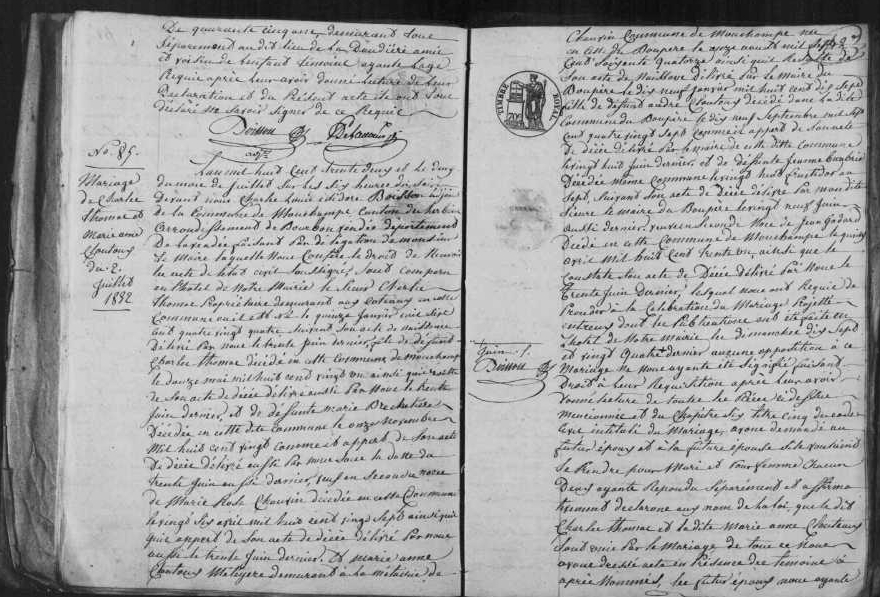 De quarante cinq ans, demeurant tous
Séparement au dit lieu de la Baudiere amis
et voisin de l'enfant temoins ayants l'age
Requis après leur avoir donné lecture de leur
Declaration et du Présent acte ils ont tous
déclaré ne Savoir Signer de ce Requis
Boisson
adjt
No. 85.
Mariage
de Charles
Thomas et
Marie anne
Coutous
du 2.
Juillet
1832
L'an mil huit Cent trente deux et le deux
du mois de Juillet Sur les Six heures du Soir
devant nous Charles Louis isidore Boisson adjoint
de la Commune de Mouchamps Canton des herbiers
arrondissement de Bourbon Vendée département
De la vendée faisant par délégation de monsieur
Le Maire laquelle nous Confère le droit de Recevoir
les acte de l'état Civil Soussigné, Sont comparu
en l'hotel de Notre Mairie le Sieur Charles
Thomas Propriétaire demeurant aux en cette
Commune où il est né le quinze Janvier mil Sept
Cent quatre vingt quatre Suivant Son acte de naissance
Délivré Par Nous le trente juin dernier, fils de defunt
Charles Thomas décédé en cette Commune de mouchamps
le douze mai mil huit cent vingt un ainsi que resulte
de Son acte de décès délivré aussi Par Nous le trente
Juin dernier, et de defunte Marie
Décédée en cette dite commune le onze Novembre
Mil huit Cent vingt comme il appert de Son acte
De décès délivré aussi Par nous Sous la date du
trente Juin aussi dernier, veuf en Secondes noces
de Marie Rose Chauvin décédée en cette Commune
le vingt Six avril mil huit Cent vingt Sept ainsi que
qu'il appert de Son acte de décès délivré Par nous
aussi le trente Juin dernier. Et Marie anne
Coutous Metayere demeurant à la métairie de
Chauvin Commune de Mouchamps née
en celle du Boupère le onze aout mil Sept
Cent Soixante quatorze ainsi que Resulte de
Son acte de Naissance délivré Par le maire du
Boupère le dix neuf Janvier mil huit cent dix Sept
fille de défunt andré Coutous décédé dans la dite
Commune du Boupère le dix neuf Septembre mil Sept
Cent quatre vingt Sept Comme il appert de Son acte
de décès délivré Par le maire de cette ditte Commune
le vingt huit Juin dernier, et de defunte
Décédée même Commune le vingt huit
Sept, Suivant Son acte de décès délivré Par mondit
Sieur le maire du Boupère le vingt neuf Juin
aussi dernier, veuve en Seconde Noce de Jean Godard
Décédé en cette Commune de Mouchamps le quinze
avril Mil huit Cent trente un, ainsi que le
Constate Son acte de Décès Délivré Par Nous le
Trente Juin Dernier, lesquels nous ont Requis de
Proceder à la Célébration du Mariage Projetté
entr'eux dont les Publications ont été faite en
l'hotel de Notre mairie les dimanches dix Sept
et vingt quatre dernier aucune opposition à ce
Mariage ne nous ayant été Signifié faisant
Droit à leur Requisition après leur avoir
Donné lecture de toutes les Pièces ci dessus
mentionnés et du Chapitre Six titre Cinq du Code
Civil intitulé du Mariage, avons demandé au
futur époux et à la future épouse S'ils voulaient
Se Prendre pour Mari et Pour femme Chacun
Deux ayants Répondu Séparément et affirma
tivement déclarons aux nom de la loi que le dit
Charles Thomas et la dite Marie anne Coutous
Sont unis Par le Mariage de tous ce Nous
avons dressé acte en Présence des temoins ci
après Nommés, les futurs époux nous ayants
TIMBRE ROYAL
Juin /.
Boisson